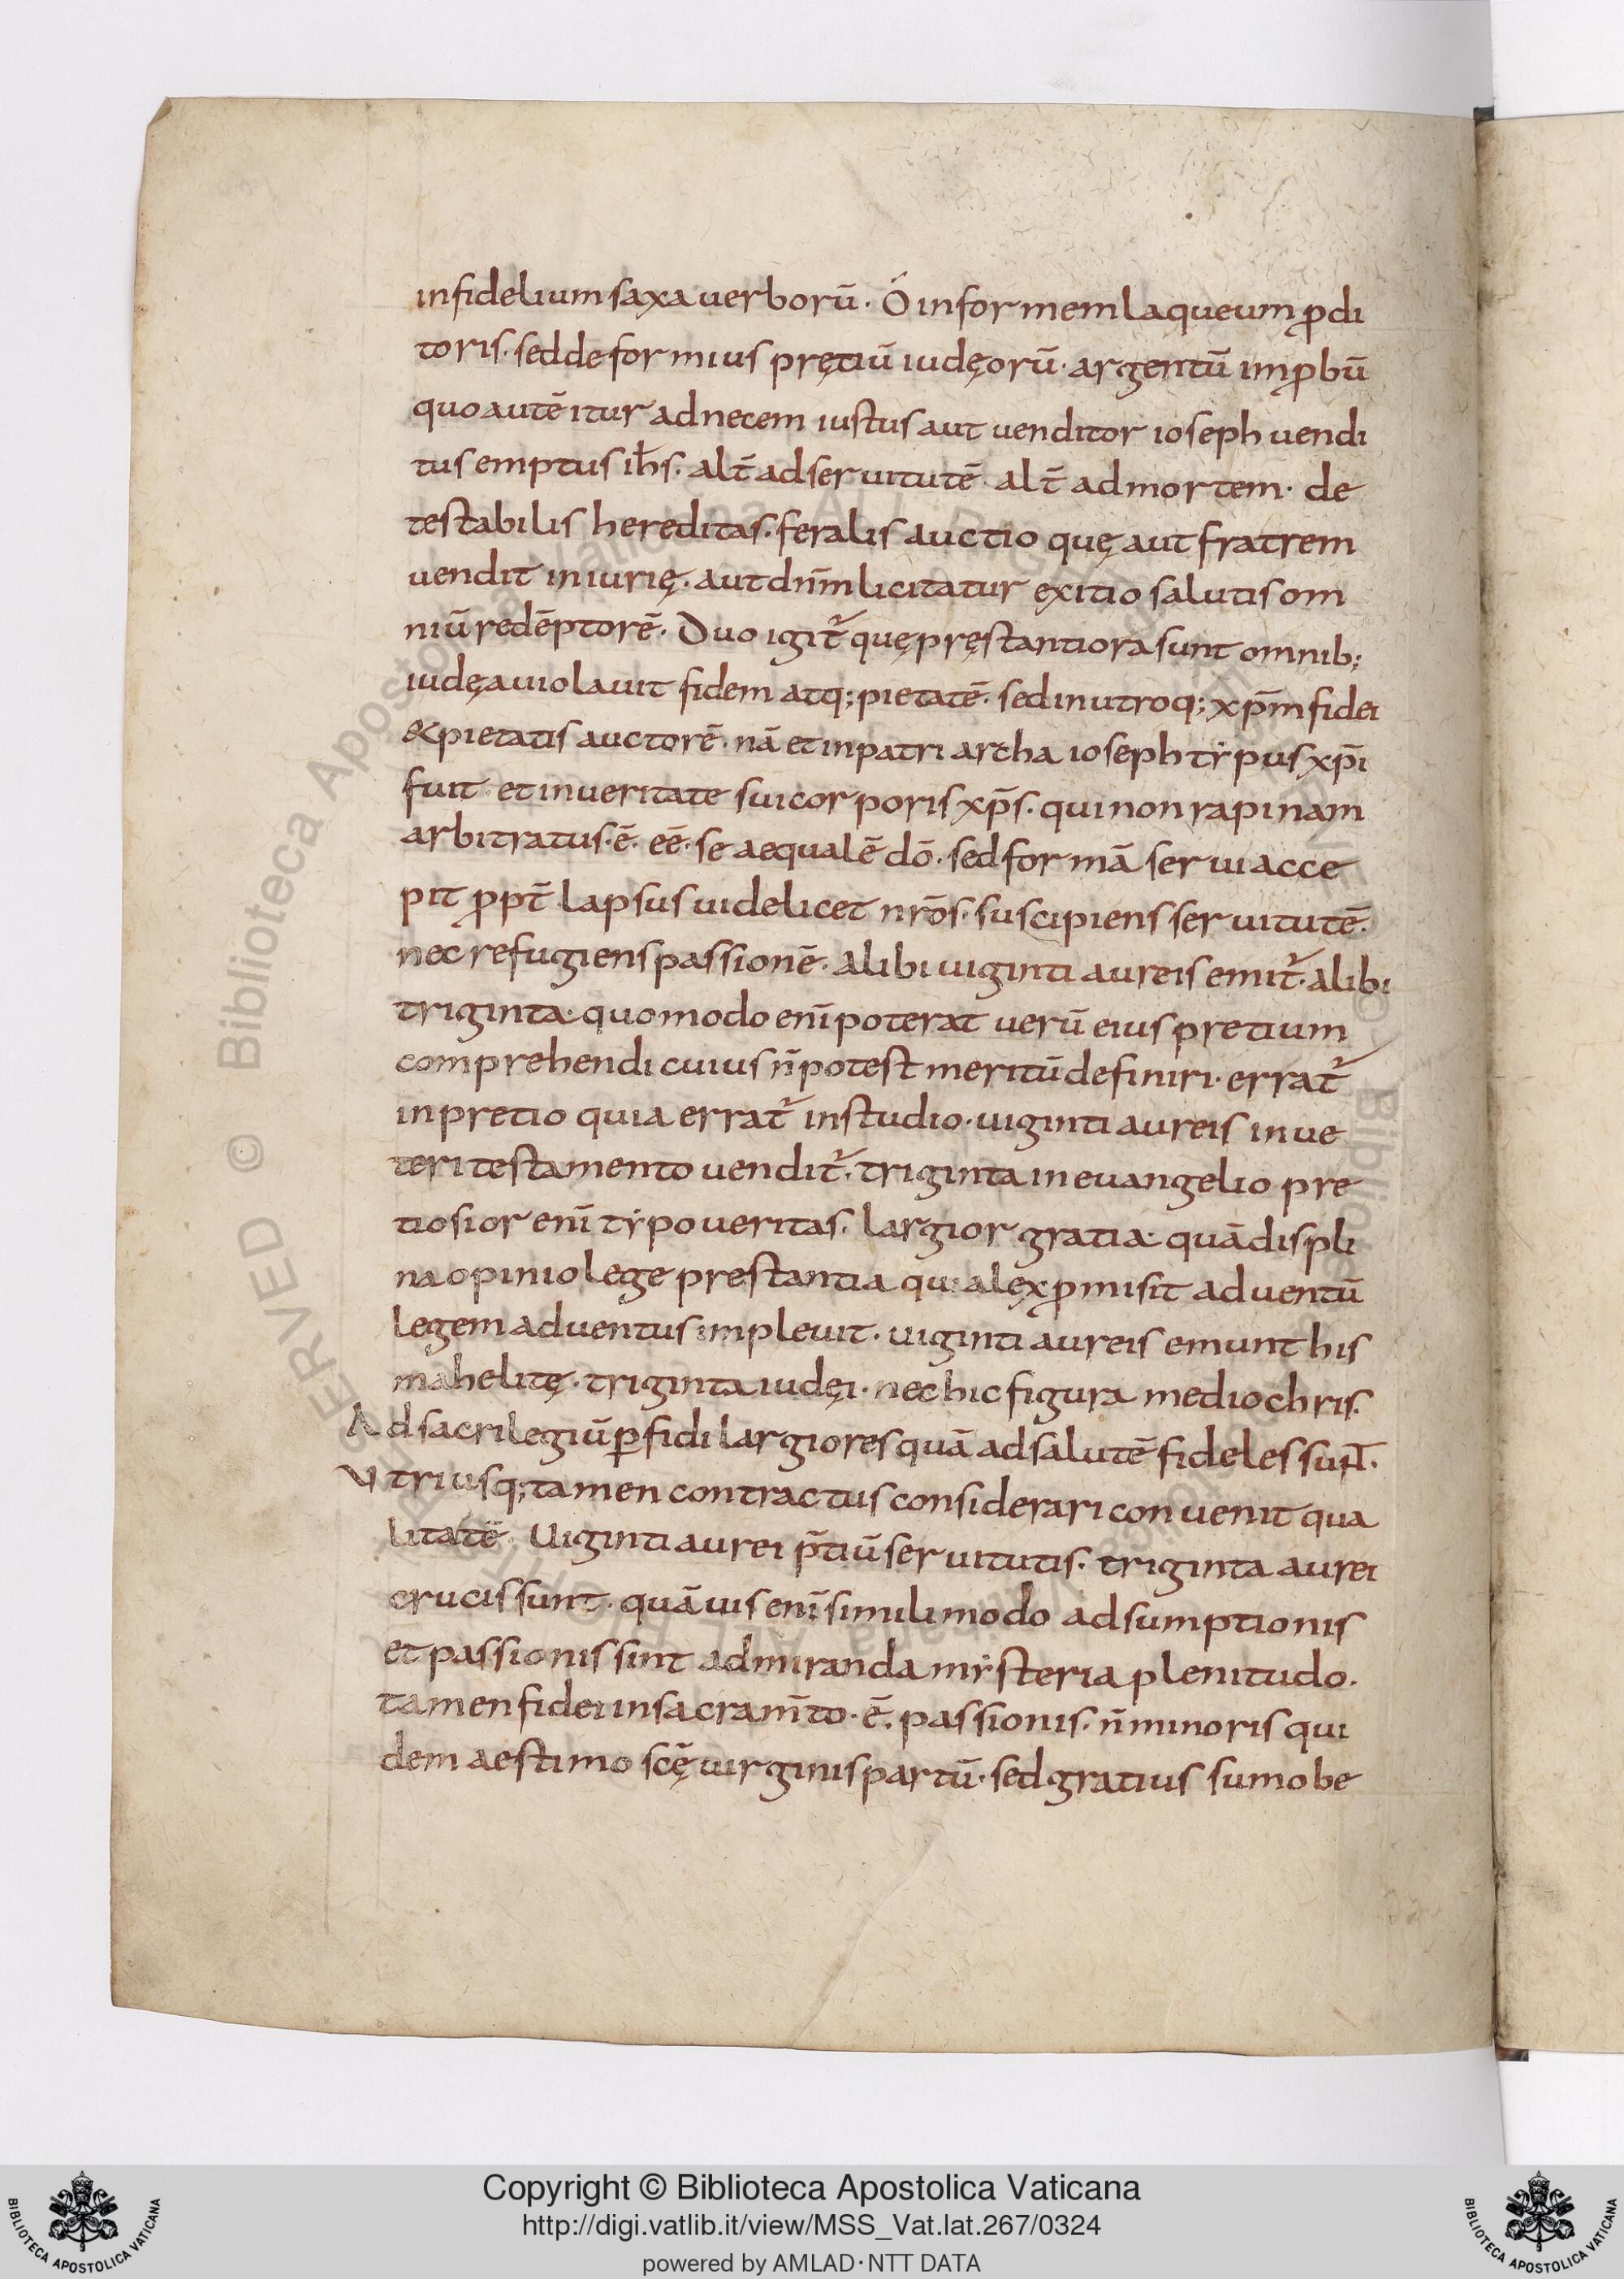 infidelium saxa uerborū· Ó informem laqueum ꝓdi
toris· sed deformius prętiū iudęorū· argentū imꝓbū
quo autē itur ad necem iustus aut uenditor ioseph uendi
tus emptus ih̄s· alt̄ ad seruitutē· alt̄ ad mortem· de
testabilis hereditas· feralis auctio quę aut fratrem
uendit iniurię· aut dn̄m licitatur exitio salutis om
niū redēptorē· Duo igit᷑ quę pręstantiora sunt omnib;
iudęa uiolauit fidem atq; pietatē· sed in utroq; xp̄m fidei
& pietatis auctorē· nā et in patriarcha ioseph tẏpus xp̄i
fuit· et in ueritate sui corporis xp̄s· qui non rapinam
arbitratus·ē· eē· se aequalē dō· sed formā serui acce
pit ꝓpt̄ lapsus uidelicet nr̄os· suscipiens seruitutē·
nec refugiens passionē· Alibi uiginti aureis emit᷑· alibi
triginta· quomodo enī poterat uerū eius pretium
comprehendi cuius n̄ potest meritū definiri· errat᷑
in pretio quia errat᷑ in studio· uiginti aureis in ue
teri testamento uendit᷑· triginta in euangelio pre
tiosior enī tẏpo ueritas· largior gratia· quā displi
na opinio lege prestantia quia lex ꝓmisit aduentū
legem aduentus impleuit· uiginti aureis emunt his
mahelitę· triginta iudęi· nec hic figura mediochris·
Ad sacrilegiū ꝑfidi largiores quā ad salutē fideles sun̄t·
Vtriusq; tamen contractus considerari conuenit qua
litatē· Uiginti aurei p̄tiū seruitutis· triginta aurei
crucis sunt· quāuis enī simili modo adsumptionis
et passionis sint admiranda mẏsteria plenitudo·
tamen fidei in sacram̄to·ē· passionis· n̄ minoris qui
dem aestimo scę̄ uirginis partū· sed gratius sumo be
Copyright © Biblioteca Apostolica Vaticana
http://digi.vatlib.it/view/MSS_Vat.lat.267/0324
powered by AMLAD·NTT DATA
BIBLIOTECA APOSTOLICA VATICANA
BIBLIOTECA APOSTOLICA VATICANA